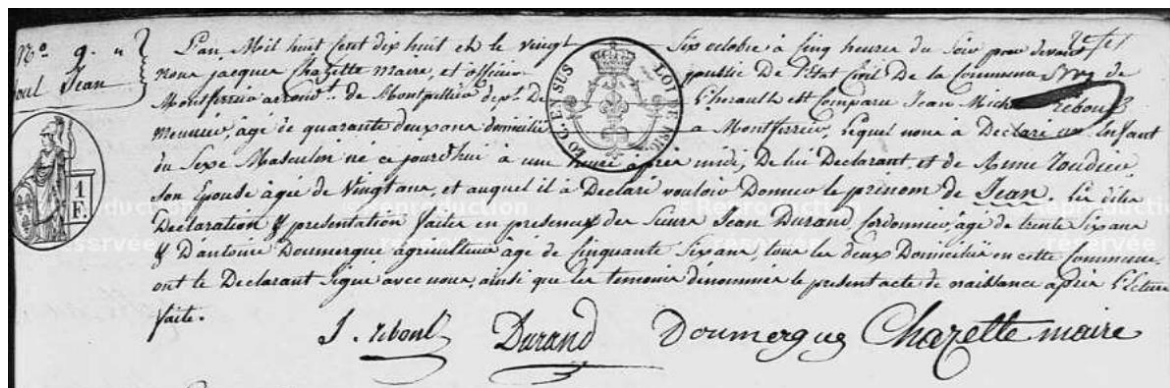 N.o 9. L'an Mil huit Cent dix huit et le vingt Six octobre à Cinq heures du Soir pardevant
Reboul Jean nous jacques Chazette Maire, et officier public De l'Etat Civil De la Commune de
Montferrier arrond.t de Montpellier dep.t De L'herault est Comparu Jean Michel reboul
meunier, agé de quarante deux ans domicilié à Montferrier, lequel nous à Declaré un Enfant
du Sexe Masculin né ce jourd'hui à une heure après midi, De lui Declarant et de Anne
Son Epouse agée de Vingt ans, et auquel il à Declaré vouloir Donner le prénom de Jean, Les dites
Declaration & presentation faites en presence des Sieurs Jean Durand, Cordonnier, agé de trente Six ans
& D'antoine Doumergue agriculteur agé de Cinquante Six ans, tous les deux Domiciliés en cette Commune.
ont le Declarant Signé avec nous, ainsi que les temoins dénommés le present acte de naissance après Lecture
faite.
J. reboul Durand Doumergue Chazette maire